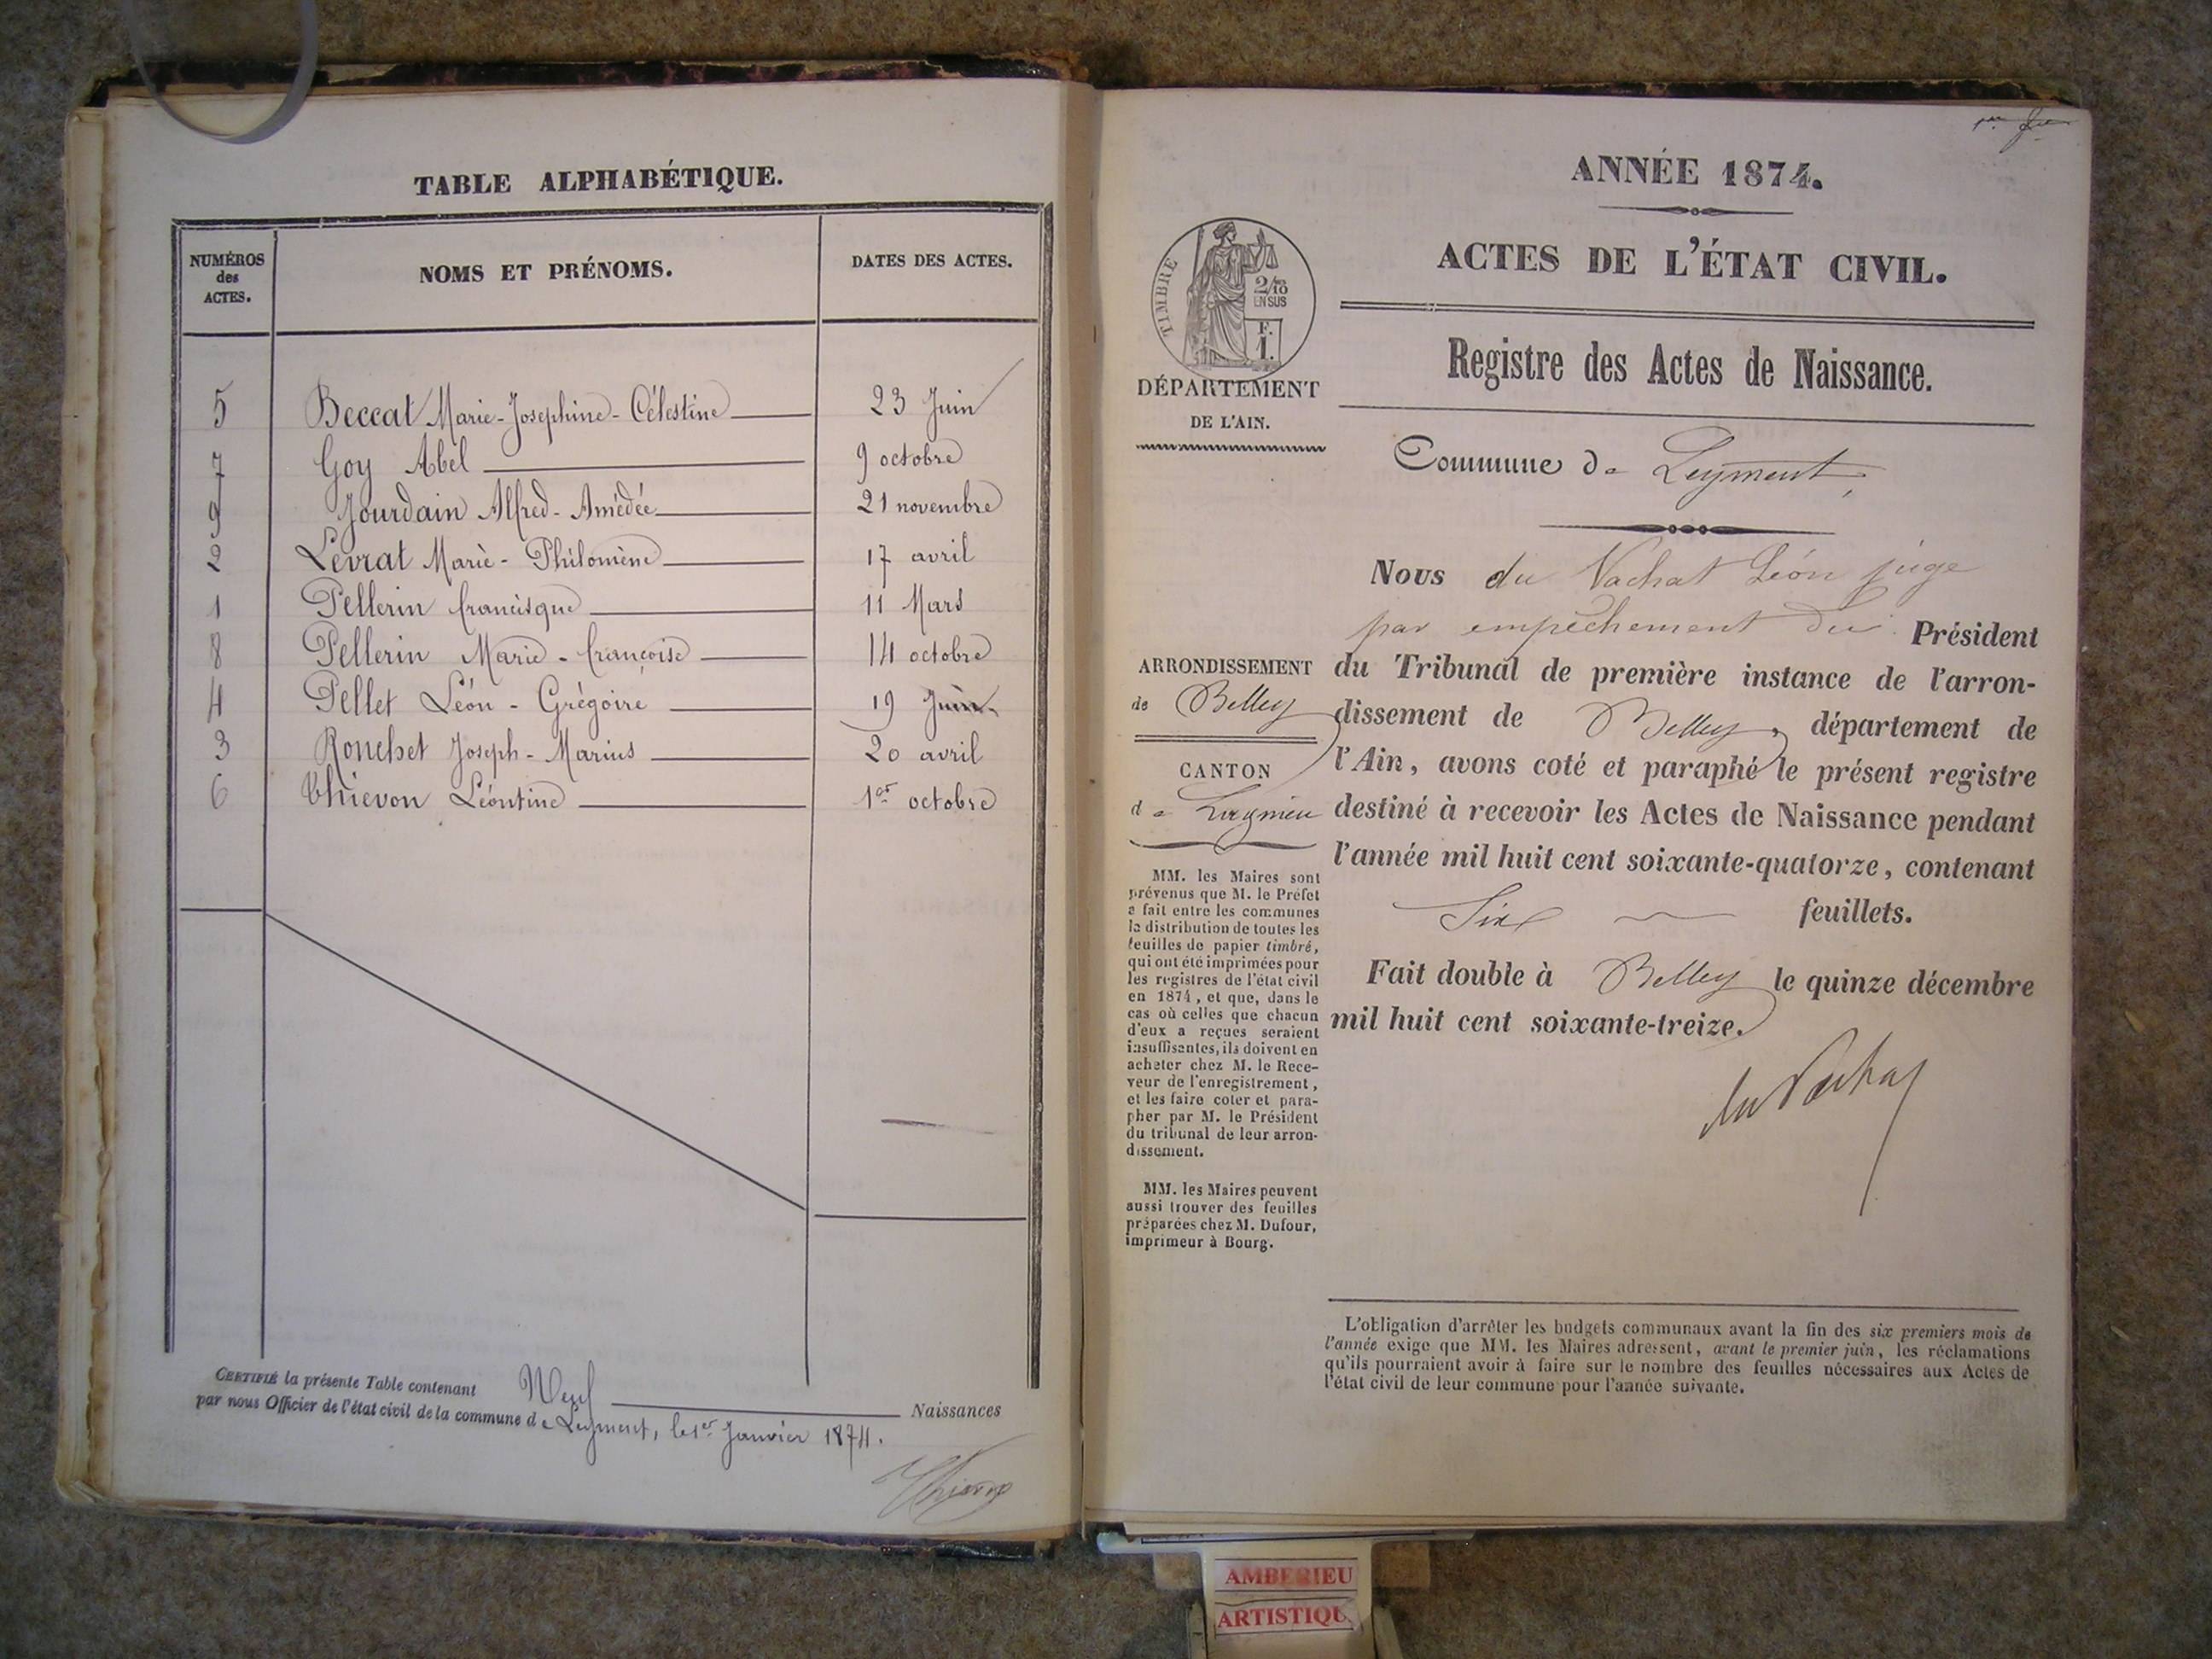 TABLE ALPHABÉTIQUE.
NUMÉROS
des
ACTES.
NOMS ET PRÉNOMS.
DATES DES ACTES.
5 Beccat Marie-Josephine-Célestine 23 Juin
7 Goy Abel 9 octobre
9 Jourdain Alfred-Amédée 21 novembre
2 Levrat Marie-Philomène 17 avril
1 Pellerin francisque 11 Mars
8 Pellerin Marie-françoise 14 octobre
4 Pellet Léon-Grégoire 19 Juin
3 Ronchet Joseph-Marius 20 avril
6 Thievon Léontine 1er octobre
CERTIFIÉ la présente Table contenant Neuf Naissances
par nous Officier de l'état civil de la commune de Leyment, le 1er Janvier 1874.
ANNÉE 1874.
ACTES DE L'ÉTAT CIVIL.
TIMBRE
2/10
EN SUS
F.
1.
DÉPARTEMENT
DE L'AIN.
Registre des Actes de Naissance.
Commune de Leyment,
Nous du Vachat Léon juge
par empêchement du Président
du Tribunal de première instance de l'arron-
dissement de Belley, département de
l'Ain, avons coté et paraphé le présent registre
destiné à recevoir les Actes de Naissance pendant
l'année mil huit cent soixante-quatorze, contenant
Six feuillets.
Fait double à Belley le quinze décembre
mil huit cent soixante-treize.
du Vachat
ARRONDISSEMENT
de Belley
CANTON
de Lagnieu
MM. les Maires sont
prévenus que M. le Préfet
a fait entre les communes
la distribution de toutes les
feuilles de papier timbré,
qui ont été imprimées pour
les registres de l'état civil
en 1874, et que, dans le
cas où celles que chacun
d'eux a reçues seraient
insuffisantes, ils doivent en
acheter chez M. le Rece-
veur de l'enregistrement,
et les faire coter et para-
pher par M. le Président
du tribunal de leur arron-
dissement.
MM. les Maires peuvent
aussi trouver des feuilles
préparées chez M. Dufour,
imprimeur à Bourg.
L'obligation d'arrêter les budgets communaux avant la fin des six premiers mois de
l'année exige que MM. les Maires adressent, avant le premier juin, les réclamations
qu'ils pourraient avoir à faire sur le nombre des feuilles nécessaires aux Actes de
l'état civil de leur commune pour l'année suivante.
AMBERIEU
ARTISTIQU